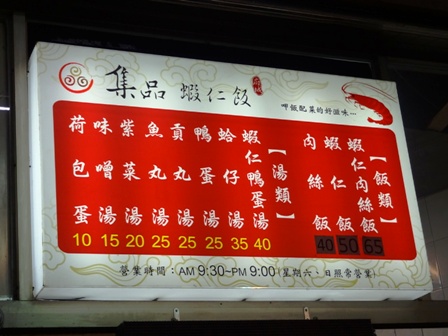 集品 蝦仁飯
呷飯配菜的好滋味…
【飯類】
蝦仁肉絲飯 65
蝦仁飯 50
肉絲飯 40
【湯類】
蝦仁鴨蛋湯 40
蛤仔湯 35
鴨蛋湯 25
貢丸湯 25
魚丸湯 25
紫菜湯 20
味噌湯 15
荷包蛋 10
營業時間：AM 9:30~PM 9:00 (星期六、日照常營業)